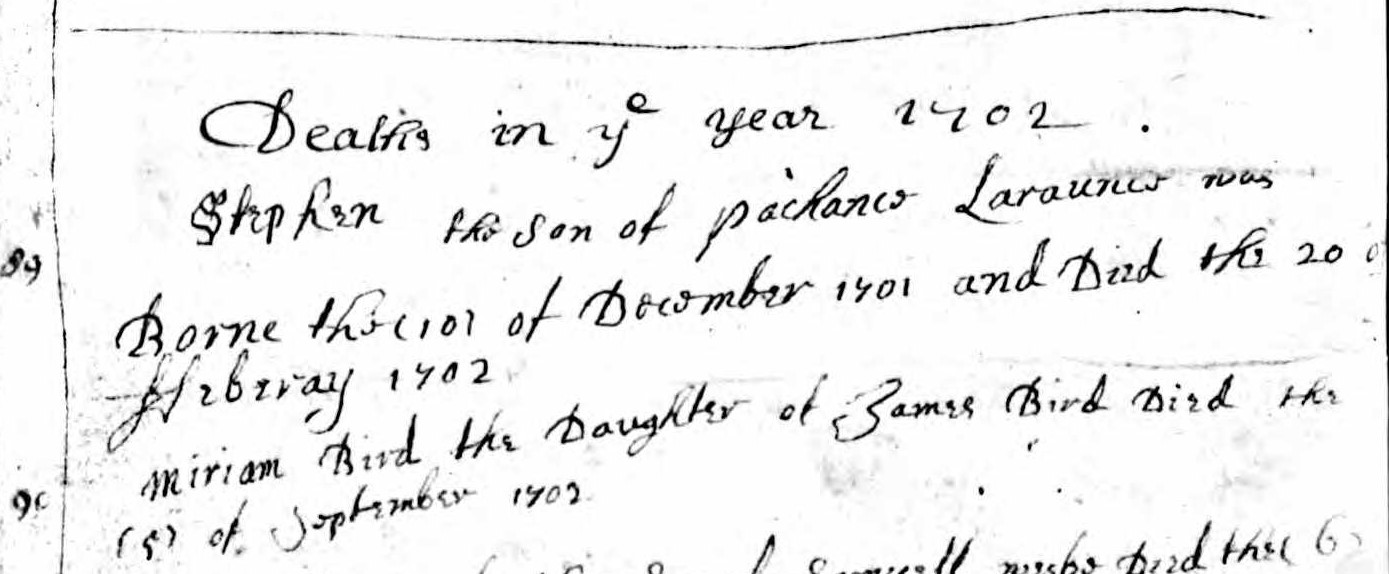 Deaths in yͤ year 1702.
Stephen the son of pachance Laraunce was
89
Borne the (10) of December 1701 and Died the 20 of
ffeberay 1702
Miriam Bird the Daughter of James Bird Died the
90
(5) of September 1702
Died the (6)